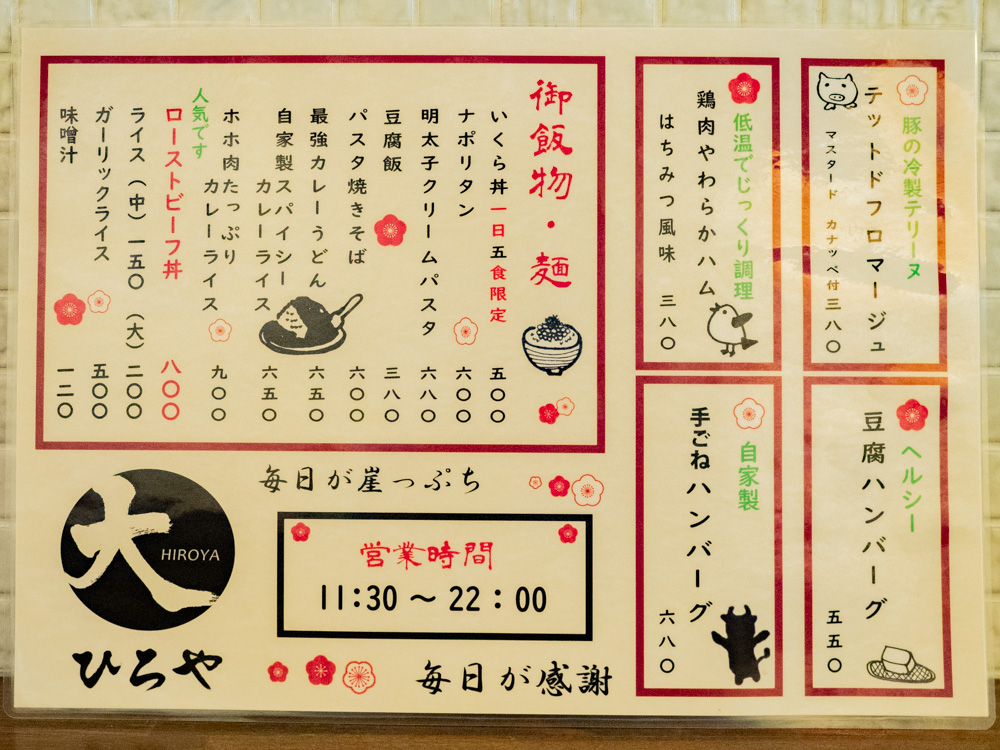 豚の冷製テリーヌ
テットドフロマージュ
マスタード カナッペ付 三八〇
低温でじっくり調理
鶏肉やわらかハム
はちみつ風味 三八〇
ヘルシー
豆腐ハンバーグ
五五〇
自家製
手ごねハンバーグ
六八〇
御飯物・麺
いくら丼 一日五食限定 五〇〇
ナポリタン 六〇〇
明太子クリームパスタ 六八〇
豆腐飯 三八〇
パスタ焼きそば 六〇〇
最強カレーうどん 六五〇
自家製スパイシー
カレーライス 六五〇
ホホ肉たっぷり
カレーライス 九〇〇
人気です
ローストビーフ丼 八〇〇
ライス(中)一五〇 (大)二〇〇
ガーリックライス 五〇〇
味噌汁 一二〇
毎日が崖っぷち
営業時間
11:30 〜 22:00
毎日が感謝
大
HIROYA
ひろや